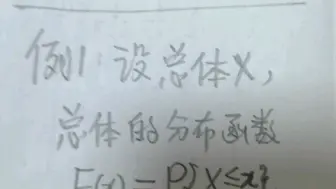 例1:设总体X,
总体的分布函数
F(x)=P{X≤x}